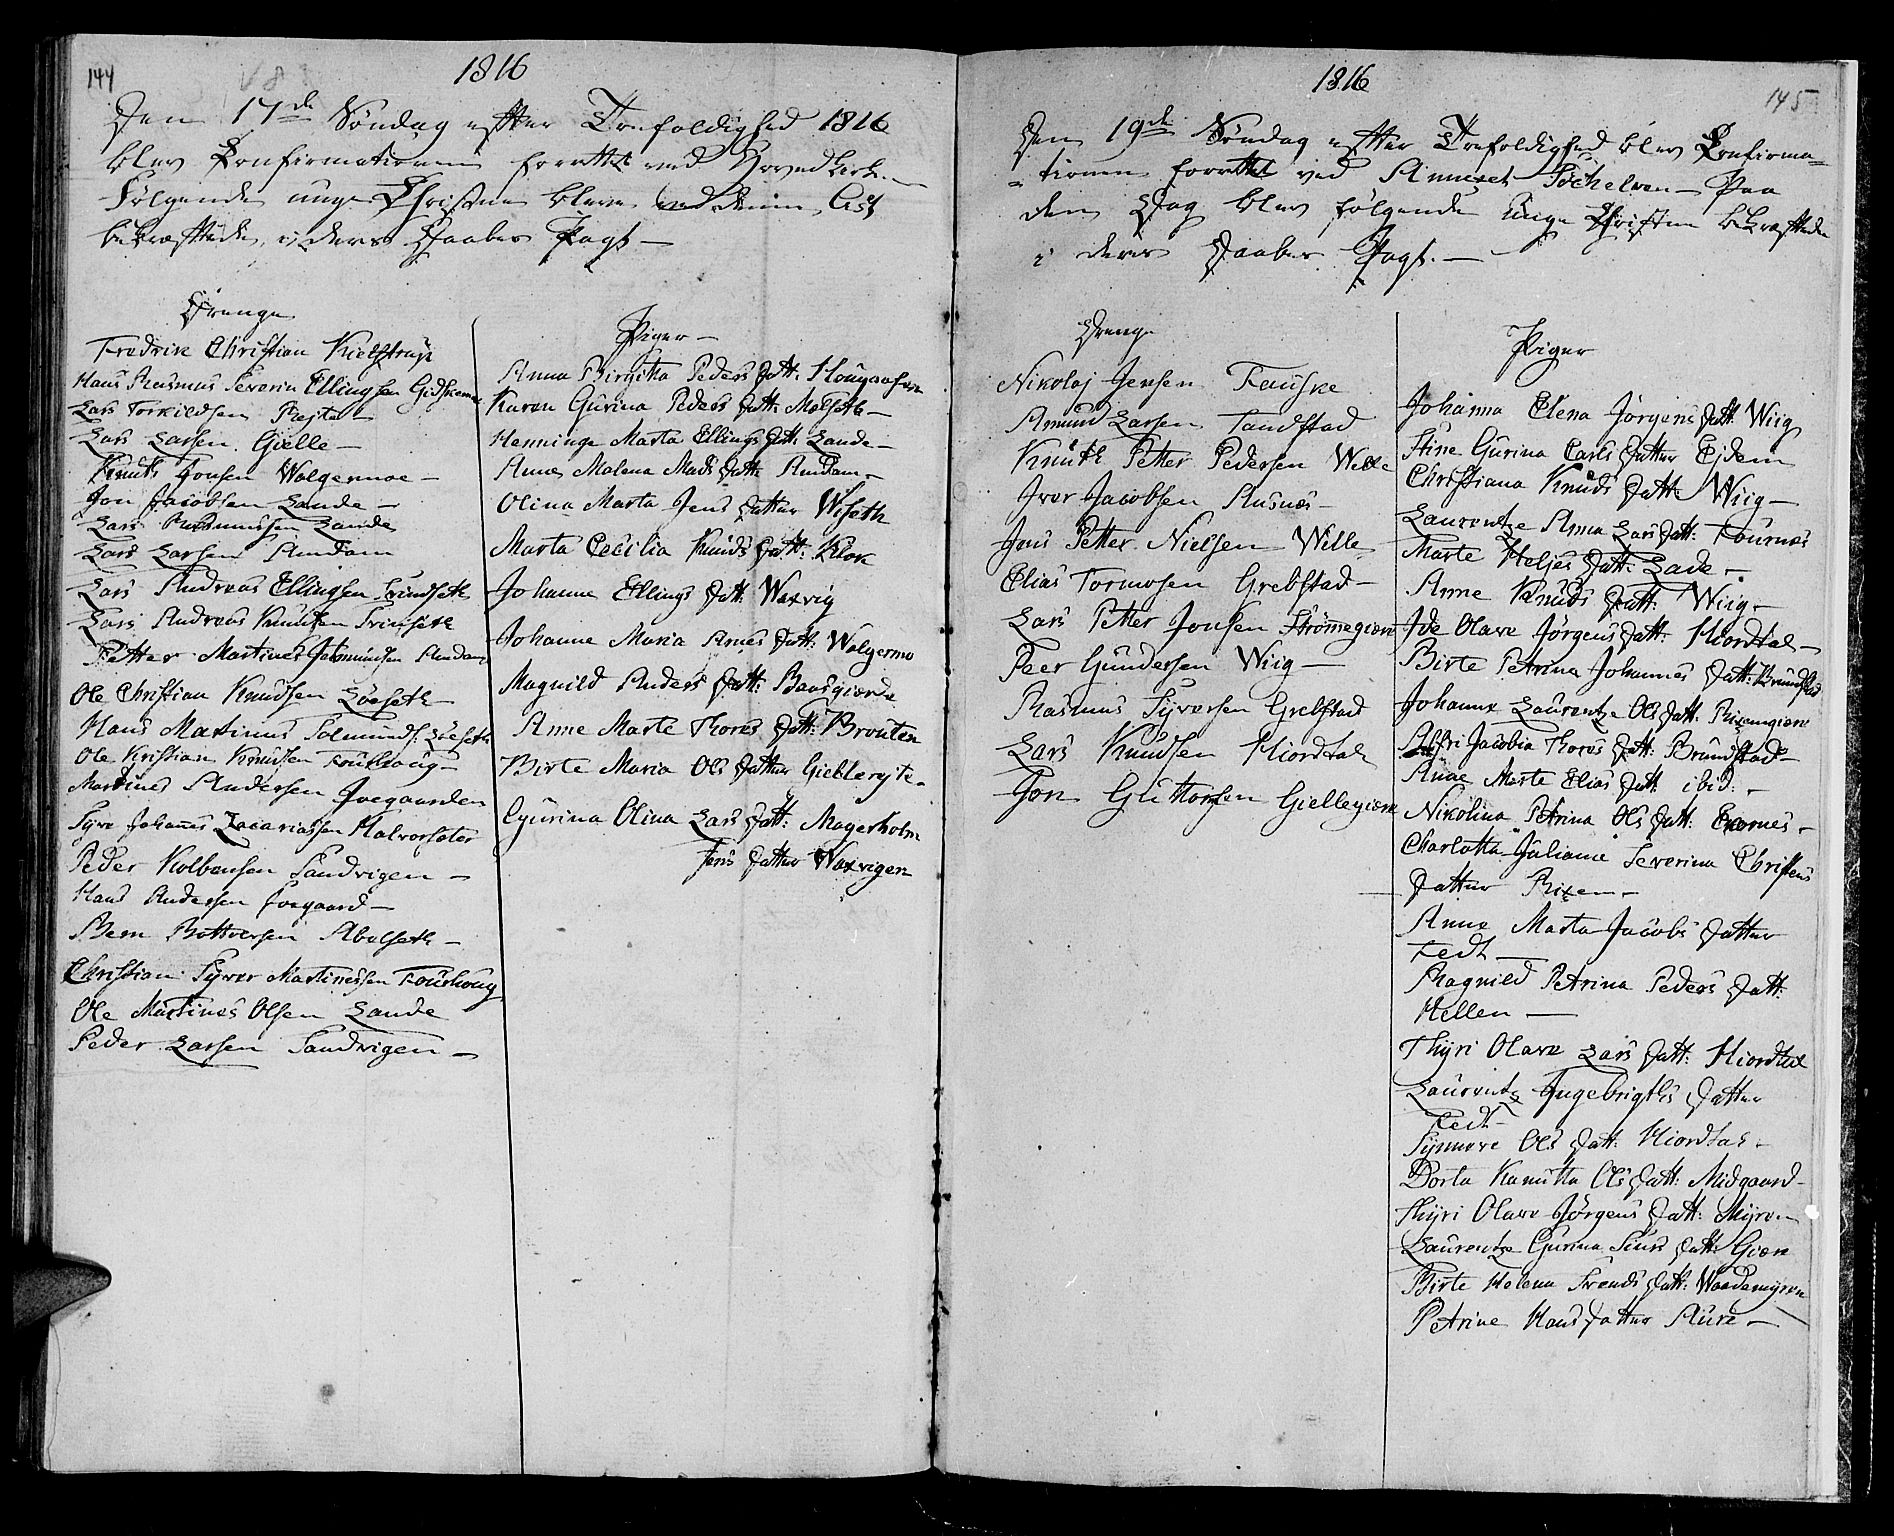 144
1816
Den 17de Søndag efter Trefoldighed 1816
blev Confirmationen forrettet ved Hovedkirk.
Følgende unge Christne bleve ved denne Act
bekræftede i deres Daabes Pagt —
Drenge
Fredrik Christian Kielstrup
Hans Rasmus Severin Ellingsen Gidskemoe
Lars Torkildsen Rejte —
Lars Larsen Gielle —
Knut Jonsen Walgermoe —
Jon Jacobsen Lande —
Lars Rasmussen Lande
Lars Larsen Amdam
Lars Andreas Ellingsen
Lars Andreas Knudsen
Petter Martines Amdam
Ole Christian Knudsen Löeseth
Hans Martinus Löeseth
Ole Kristian Knudsen
Martines Andersen Joegaarden
Syver Johanes Zacariassen Halvorsæter
Peder Kolbensen Sandvigen —
Hans Andersen Joegaard —
Bern Bottversen Abelseth —
Christian Syver Martinessen
Ole Martines Olsen Lande
Peder Larsen Sandvigen —
Piger —
Anna Birgitta Peders Datt:
Karen Gurina Peders Datt: Melseth —
Henninge Marta Ellings Datt: Lande —
Anne Malena Mads Datt: Amdam —
Olina Marta Jens Datter Wiseth
Marta Cecilia Knuds Datt: Klok
Johanne Ellings Datt: Waxvig
Johanne Maria Arnes Datt: Walgermo
Magnild Anders Datt: Bausgierde
Anne Marte Thores Datt: Brouten
Birte Maria Ols Datter
Gurina Olina Lars Datt: Magerholm
Jens Datter Waxvigen
1816
145
Den 19de Søndag efter Trefoldighed blev Confirma-
tionen forrettet ved Annexet Söchelven — Paa
den Dag blev følgende unge Christne bekræftede
i deres Daabes Pagt. —
Drenge
Nikolaj Jensen Fauske
Amund Larsen Tandstad
Knuth Petter Pedersen Welle
Iver Jacobsen Ausnæs —
Jens Petter Nielsen Welle
Elias Tormosen Grebstad —
Lars Petter Jonsen Strømegiere
Peer Gundersen Wiig —
Rasmus Syversen Grebstad
Lars Knudsen Hiordtal
Jon Guttormsen Giellegiere
Piger
Johanna Elena Jörgens Datt: Wiig
Stine Gurina Carls Datter Ejdem
Christiana Knuds Datt: Wiig —
Laurentze Anna Lars Datt: Tournes
Marte Heljes Datt: Lade —
Anne Knuds Datt: Wiig —
Ide Olave Jörgens Datt: Hiordtal —
Birte Petrina Johannes Datt: Brundstad
Johanne Laurentze Ols Datt: Rixemgiere
Jacobia Thores Datt: Brundstad —
Anne Marte Elias Datt ibid: —
Nikolina Petrina Ols Datt: Exornes —
Charlotta Juliane Severina Christens
Datter Rixem —
Anne Marta Jacobs Datter
Fedt —
Magnild Petrina Peders Datt:
Hellen —
Thyri Olave Lars Datt: Hiordtal
Laurentz Ingebrigths Datter
Fedt —
Synnøve Ols Datt: Hiordtal —
Dorta Kanutta Ols Datt: Midgaard —
Thyri Olave Jörgens Datt: Myren
Laurentze Gurina Siurs Datt: Giere
Birte Helena Svends Datt: Waademyren
Petrine Hans Datter Aure —